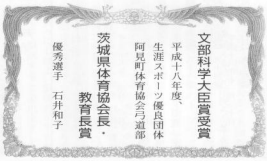 文部科学大臣賞受賞
平成十八年度、
生涯スポーツ優良団体
阿見町体育協会弓道部
茨城県体育協会長・
教育長賞
優秀選手　石井和子